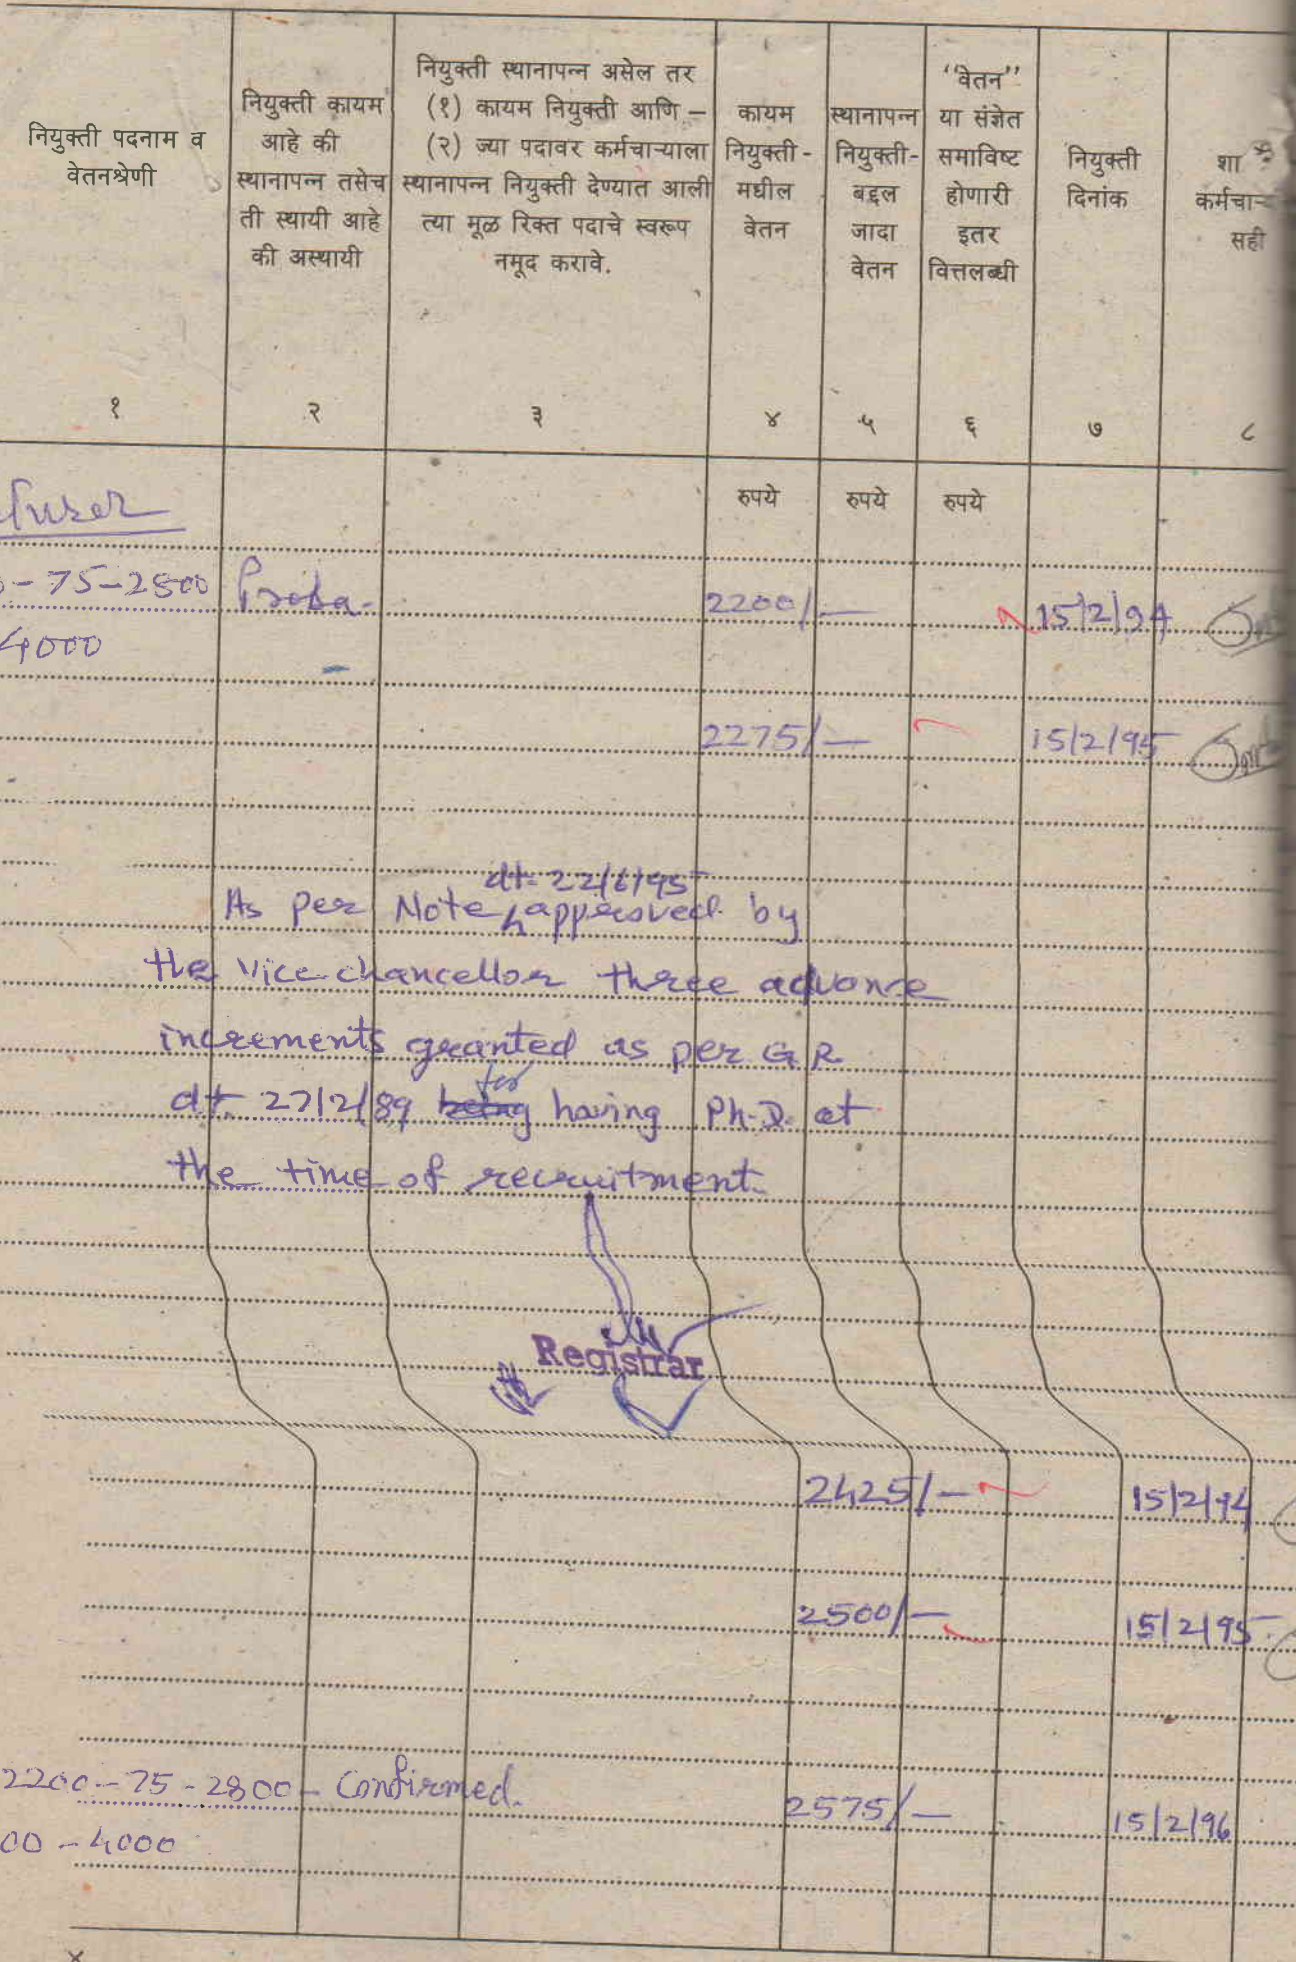 नियुक्ती पदनाम व
वेतनश्रेणी
नियुक्ती कायम
आहे की
स्थानापन्न तसेच
ती स्थायी आहे
की अस्थायी
नियुक्ती स्थानापन्न असेल तर
(१) कायम नियुक्ती आणि –
(२) ज्या पदावर कर्मचाऱ्याला
स्थानापन्न नियुक्ती देण्यात आली
त्या मूळ रिक्त पदाचे स्वरूप
नमूद करावे.
कायम
नियुक्ती-
मधील
वेतन
स्थानापन्न
नियुक्ती-
बद्दल
जादा
वेतन
"वेतन"
या संज्ञेत
समाविष्ट
होणारी
इतर
वित्तलब्धी
नियुक्ती
दिनांक
शा
कर्मचाऱ्
सही
१ २ ३ ४ ५ ६ ७ ८
रुपये रुपये रुपये
0-75-2800 Proba. 2200/- 15/2/94
4000
2275/- 15/2/95
dt. 22/6/95
As per Note approved by
the Vice chancellor three advance
increments granted as per G R
for
dt. 27/2/89 being having Ph.D. at
the time of recruitment.
Registrar
2425/- 15/2/94
2500/- 15/2/95
2200-75-2800- Confirmed. 2575/- 15/2/96
00-4000
x